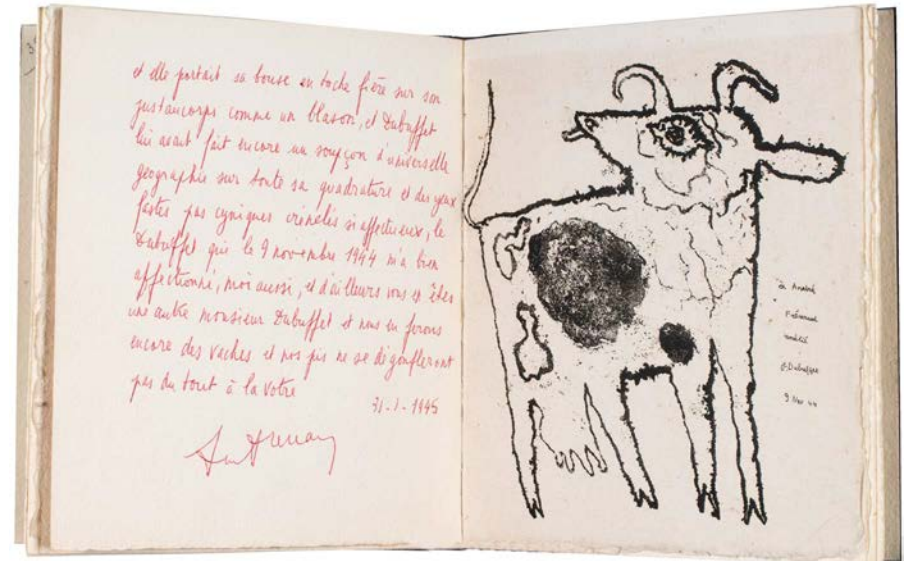 et elle portait sa bouse en toche fière sur son
justaucorps comme un blason, et Dubuffet
lui avait fait encore un soupçon d'universelle
géographie sur toute sa quadrature et des yeux
fastes pas cyniques crénelés si affectueux, le
Dubuffet qui le 9 novembre 1944 m'a bien
affectionné, moi aussi, et d'ailleurs vous en êtes
une autre monsieur Dubuffet et nous en ferons
encore des vaches et nos pis ne se dégonfleront
pas du tout à la votre
31-1-1945
à André
amitié
J. Dubuffet
9 Nov 44